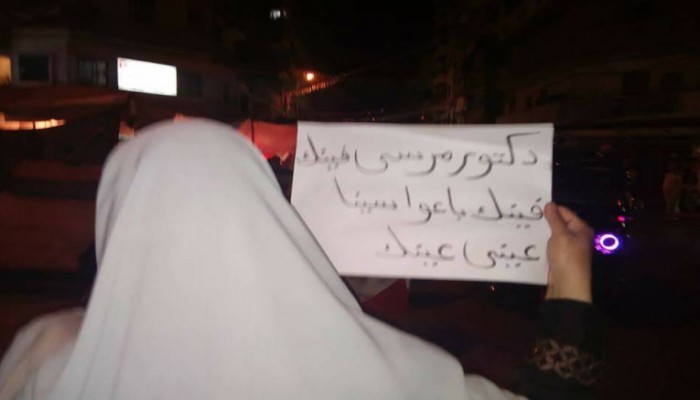 دكتور مرسى فينك
فينك باعوا سينا
عينى عينك